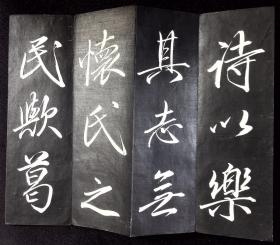 诗以樂
其志無
懷氏之
民歟葛